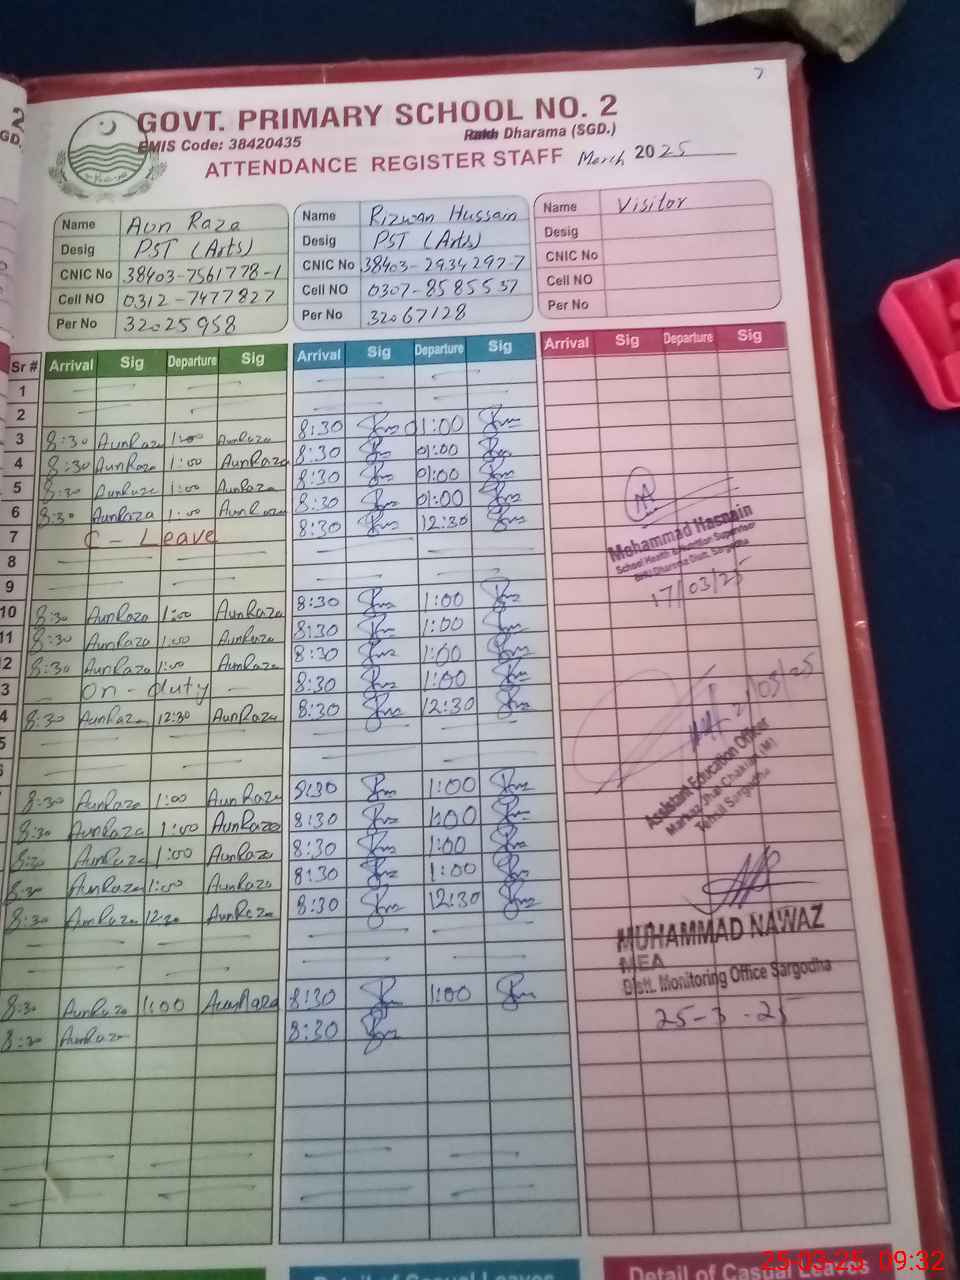 2
GD.
7
GOVT. PRIMARY SCHOOL NO. 2
EMIS Code: 38420435 Rakh Dharama (SGD.)
ATTENDANCE REGISTER STAFF March 2025
Name Aun Raza Name Rizwan Hussain Name Visitor
Desig PST (Arts) Desig PST (Arts) Desig
CNIC No 38403-7561778-1 CNIC No 38403-2934297-7 CNIC No
Cell NO 0312-7477827 Cell NO 0307-8585537 Cell NO
Per No 32025958 Per No 32067128 Per No
Sr # Arrival Sig Departure Sig Arrival Sig Departure Sig Arrival Sig Departure Sig
1
2
3 8:30 AunRaza 1:00 AunRaza 8:30 01:00
4 8:30 AunRaza 1:00 AunRaza 8:30 01:00
5 8:30 AunRaza 1:00 AunRaza 8:30 01:00
6 8:30 AunRaza 1:00 AunRaza 8:30 01:00
7 C - Leave 8:30 12:30
8
9
10 8:30 AunRaza 1:00 AunRaza 8:30 1:00
11 8:30 AunRaza 1:00 AunRaza 8:30 1:00
2 8:30 AunRaza 1:00 AunRaza 8:30 1:00
3 On-duty 8:30 1:00
4 8:30 AunRaza 12:30 AunRaza 8:30 12:30
5
8:30 AunRaza 1:00 AunRaza 8:30 1:00
8:30 AunRaza 1:00 AunRaza 8:30 1:00
8:30 AunRaza 1:00 AunRaza 8:30 1:00
8:30 AunRaza 1:00 AunRaza 8:30 1:00
8:30 AunRaza 12:30 AunRaza 8:30 12:30
8:30 AunRaza 1:00 AunRaza 8:30 1:00
8:30 AunRaza 8:30
Mohammad Hasnain
School Health & Nutrition Supervisor
BHU Dharama Distt. Sargodha
17/03/25
21/03/25
Assistant Education Officer
Markaz Chak (M)
Tehsil Sargodha
MUHAMMAD NAWAZ
MEA
Distt. Monitoring Office Sargodha
25-3-25
Detail of Casual Leaves Detail of Casual Leaves
25-03-25 09:32